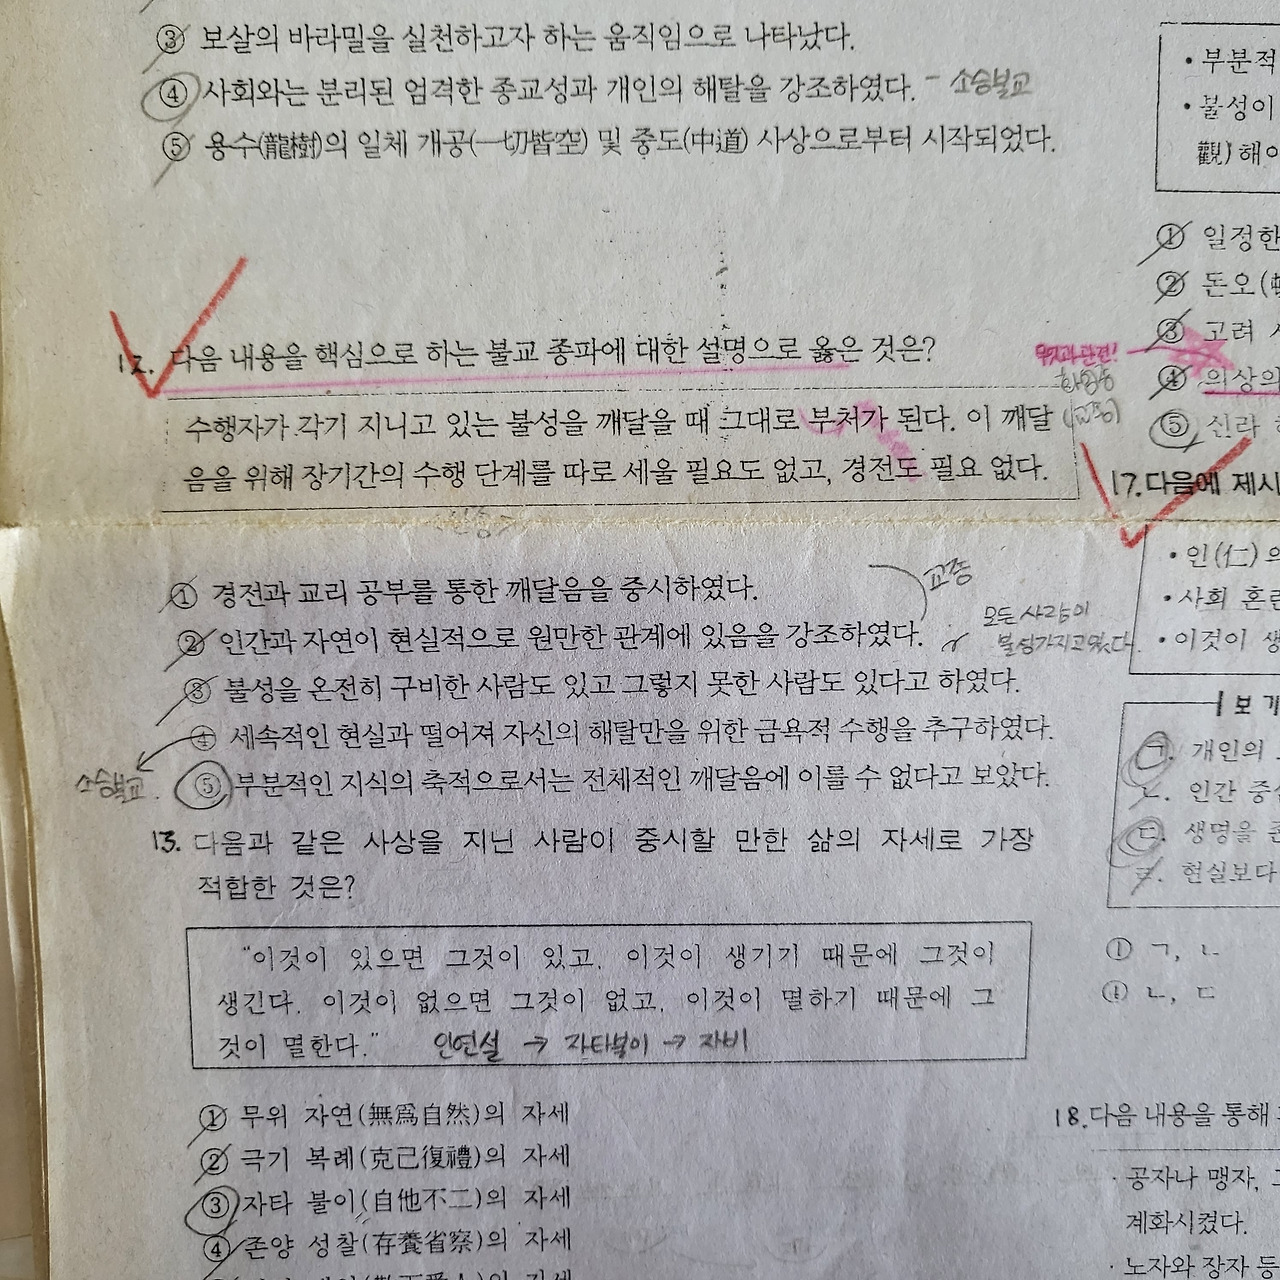 ③ 보살의 바라밀을 실천하고자 하는 움직임으로 나타났다.
④ 사회와는 분리된 엄격한 종교성과 개인의 해탈을 강조하였다. - 소승불교
⑤ 용수(龍樹)의 일체 개공(一切皆空) 및 중도(中道) 사상으로부터 시작되었다.
12. 다음 내용을 핵심으로 하는 불교 종파에 대한 설명으로 옳은 것은?
수행자가 각기 지니고 있는 불성을 깨달을 때 그대로 부처가 된다. 이 깨달
음을 위해 장기간의 수행 단계를 따로 세울 필요도 없고, 경전도 필요 없다.
① 경전과 교리 공부를 통한 깨달음을 중시하였다.
교종
② 인간과 자연이 현실적으로 원만한 관계에 있음을 강조하였다.
모든 사람이
불성가지고있다.
③ 불성을 온전히 구비한 사람도 있고 그렇지 못한 사람도 있다고 하였다.
④ 세속적인 현실과 떨어져 자신의 해탈만을 위한 금욕적 수행을 추구하였다.
소승불교
⑤ 부분적인 지식의 축적으로서는 전체적인 깨달음에 이를 수 없다고 보았다.
13. 다음과 같은 사상을 지닌 사람이 중시할 만한 삶의 자세로 가장
적합한 것은?
"이것이 있으면 그것이 있고, 이것이 생기기 때문에 그것이
생긴다. 이것이 없으면 그것이 없고, 이것이 멸하기 때문에 그
것이 멸한다."
인연설 → 자타불이 → 자비
① 무위 자연(無爲自然)의 자세
② 극기 복례(克己復禮)의 자세
③ 자타 불이(自他不二)의 자세
④ 존양 성찰(存養省察)의 자세
• 부분적
• 불성이
觀) 해
① 일정한
② 돈오
③ 고려
④ 의상의
⑤ 신라
(교종)
17. 다음에 제시
• 인(仁)의
• 사회 훈련
• 이것이 생
보 기
ㄱ. 개인의
ㄴ. 인간 중심
ㄷ. 생명을 존
ㄹ. 현실보다
① ㄱ, ㄴ
④ ㄴ, ㄷ
18. 다음 내용을 통해
· 공자나 맹자,
계화시켰다.
· 노자와 장자 등